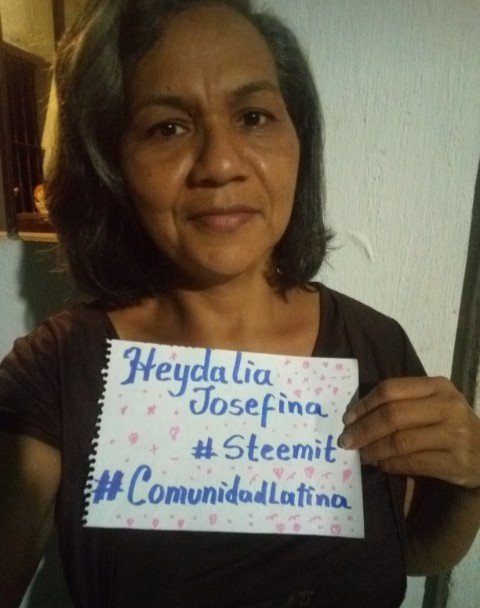 Heydalia
Josefina
#Steemit
#ComunidadLatina